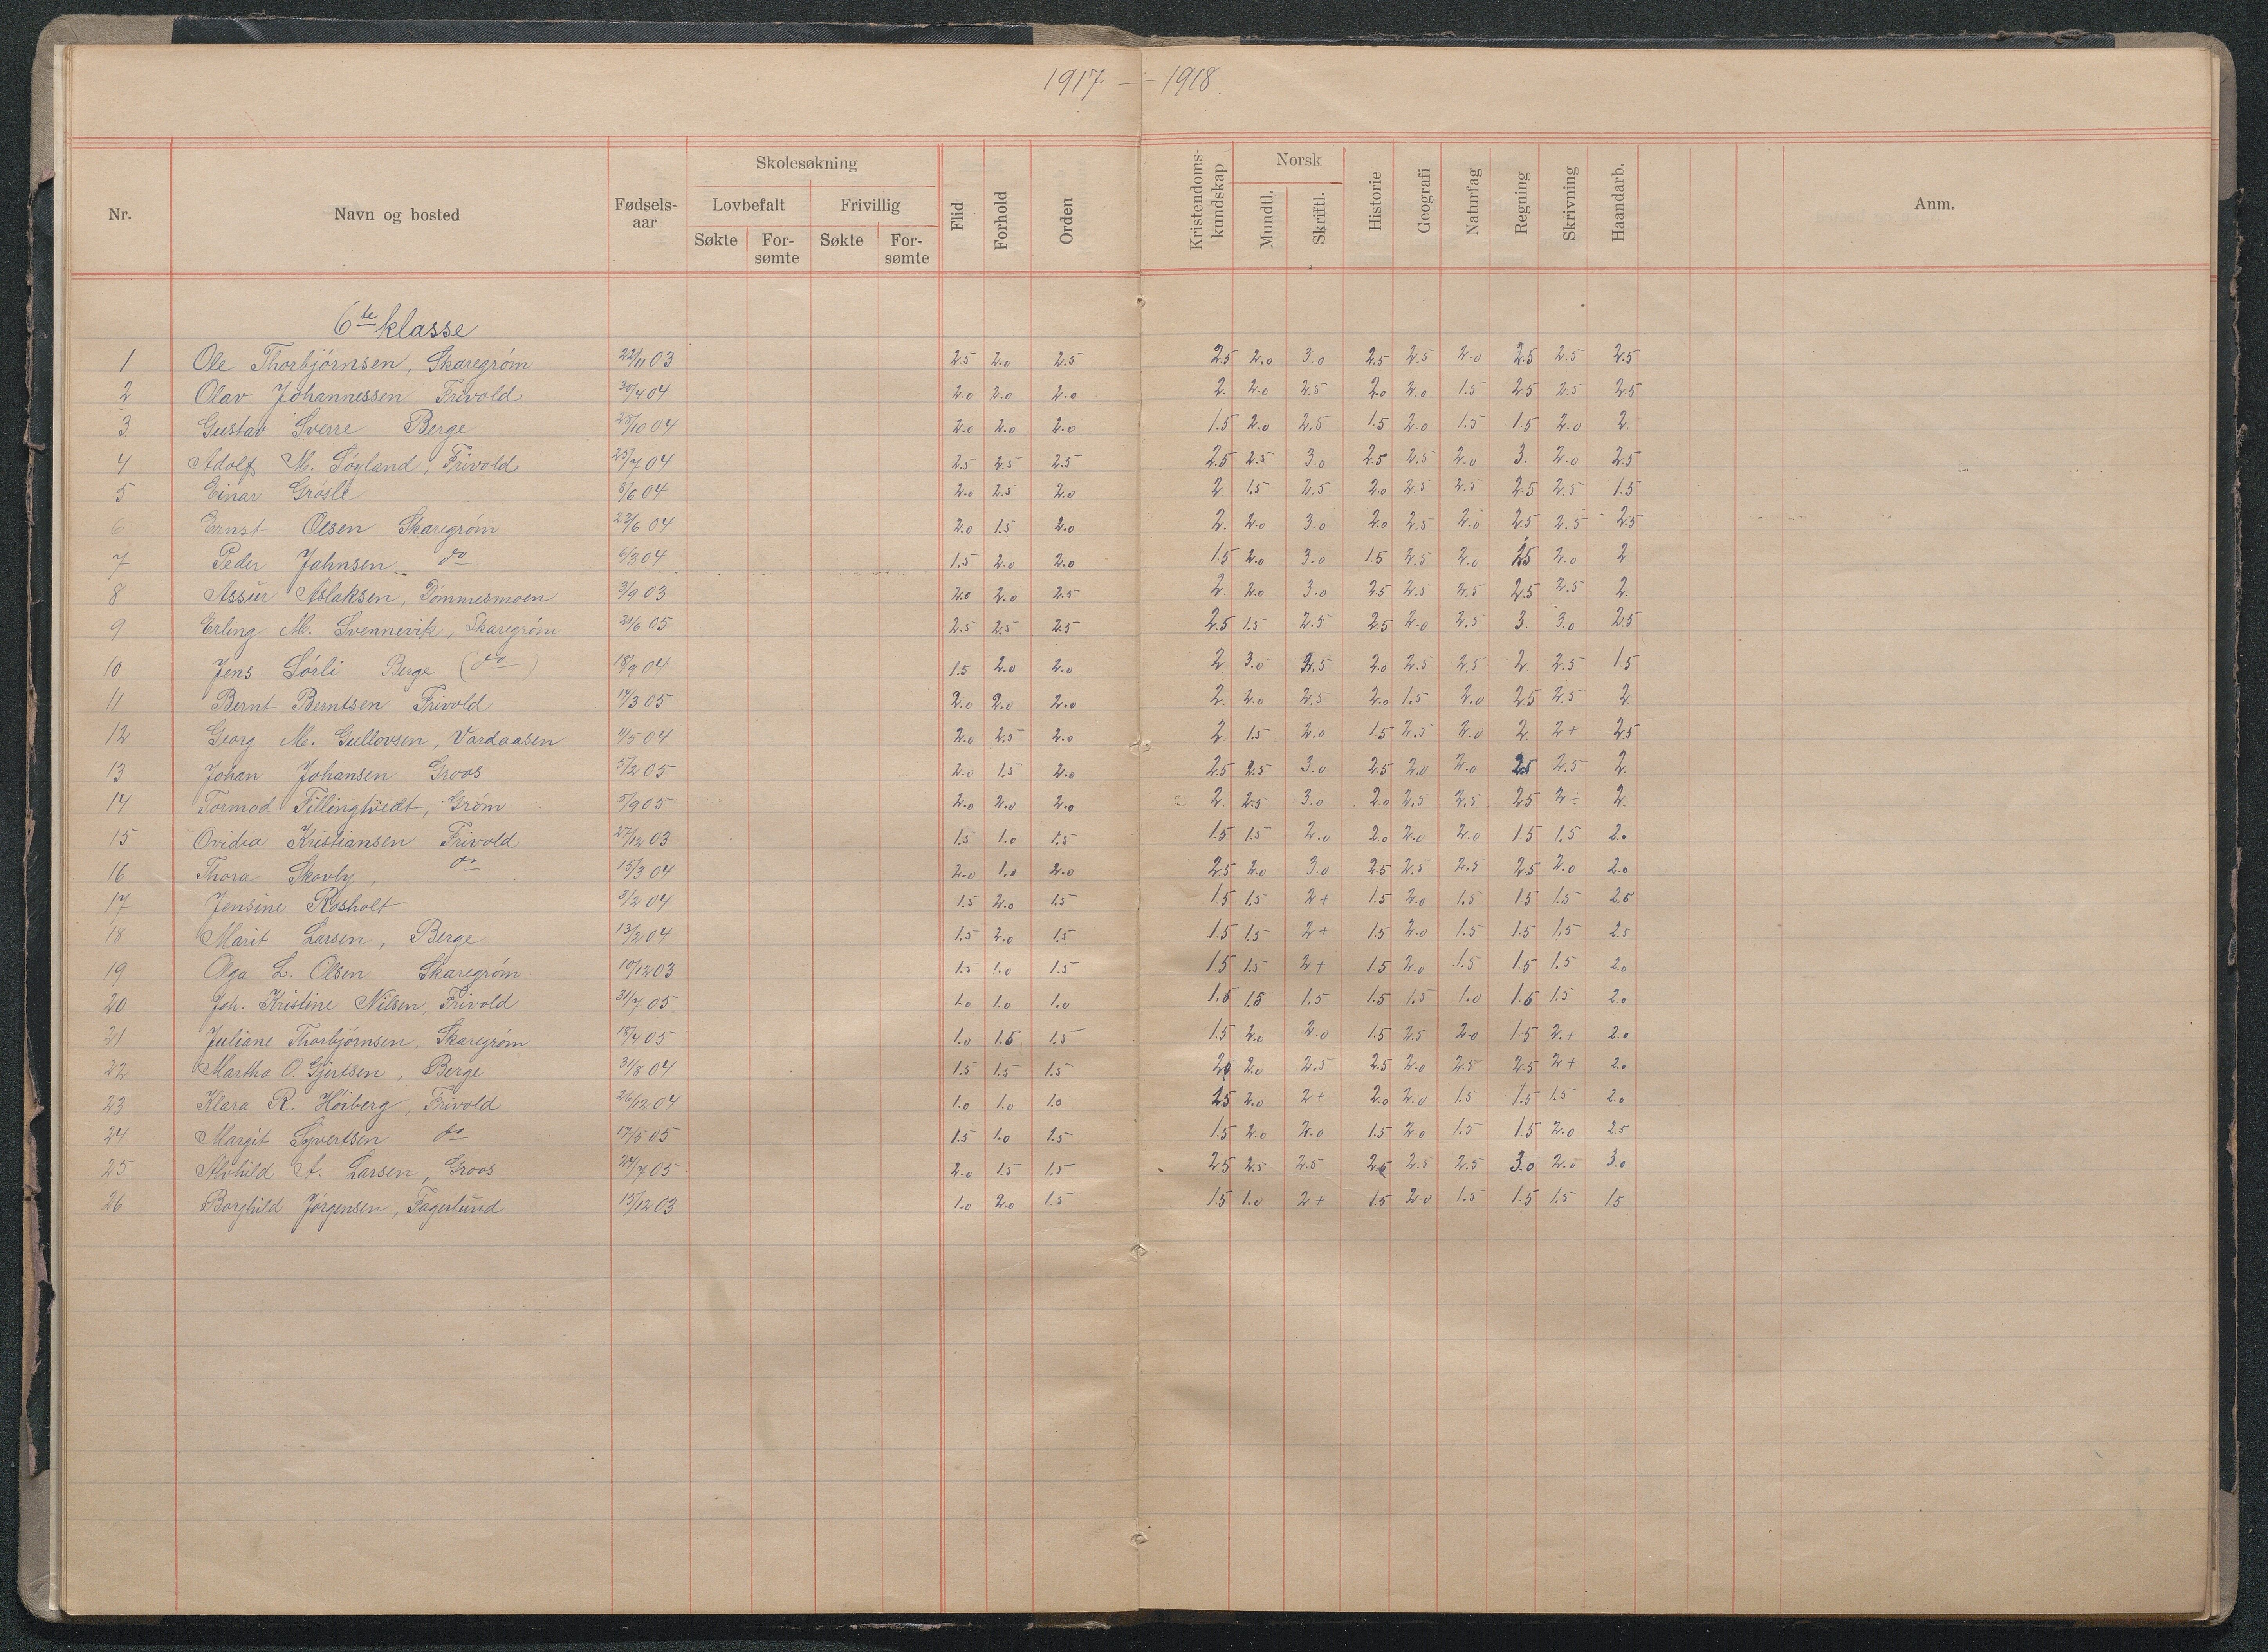 1917 — 1918.
Nr. Navn og bosted Fødsels-aar Skolesøkning Lovbefalt Søkte For-sømte Frivillig Søkte For-sømte Flid Forhold Orden Kristendoms-kundskap Norsk Mundtl. Skriftl. Historie Geografi Naturfag Regning Skrivning Haandarb. Anm.
6te klasse
1 Ole Thorbjörnsen, Skaregröm 22/11 03 2.5 2.0 2.5 2.5 2.0 3.0 2.5 2.5 2.0 2.5 2.5 2.5
2 Olav Johannessen Frivold 30/4 04 2.0 2.0 2.0 2. 2.0 2.5 2.0 2.0 1.5 2.5 2.5 2.5
3 Gustav Sverre Berge 28/10 04 2.0 2.0 2.0 1.5 2.0 2.5 1.5 2.0 1.5 1.5 2.0 2.
4 Adolf M. Föyland, Frivold 25/7 04 2.5 2.5 2.5 2.5 2.5 3.0 2.5 2.5 2.0 3. 2.0 2.5
5 Einar Grösle 8/6 04 2.0 2.5 2.0 2 1.5 2.5 2.0 2.5 2.5 2.5 2.5 1.5
6 Ernst Olsen Skaregröm 23/6 04 2.0 1.5 2.0 2. 2.0 3.0 2.0 2.5 2.0 2.5 2.5 2.5
7 Peder Jahnsen do 6/3 04 1.5 2.0 2.0 1.5 2.0 3.0 1.5 2.5 2.0 2.5 2.0 2
8 Assur Aslaksen, Dömmesmoen 3/9 03 2.0 2.0 2.5 2. 2.0 3.0 2.5 2.5 2.5 2.5 2.5 2.
9 Erling M. Svennevik, Skaregröm 21/6 05 2.5 2.5 2.5 2.5 1.5 2.5 2.5 2.0 2.5 3. 3.0 2.5
10 Jens Sörli Berge (do) 18/9 04 1.5 2.0 2.0 2 3.0 2.5 2.0 2.5 2.5 2. 2.5 1.5
11 Bernt Berntsen Frivold 14/3 05 2.0 2.0 2.0 2. 2.0 2.5 2.0 1.5 2.0 2.5 2.5 2
12 Georg M. Gullovsen, Vardaasen 11/5 04 2.0 2.5 2.0 2 1.5 2.0 1.5 2.5 2.0 2 2+ 2.5
13 Johan Johansen Groos 5/2 05 2.0 1.5 2.0 2.5 2.5 3.0 2.5 2.0 2.0 2.5 2.5 2.
14 Tormod Fillingtvedt, Gröm 5/9 05 2.0 2.0 2.0 2. 2.5 3.0 2.0 2.5 2.5 2.5 2÷ 2.
15 Ovidia Kristiansen Frivold 27/12 03 1.5 1.0 1.5 1.5 1.5 2.0 2.0 2.0 2.0 1.5 1.5 2.0
16 Thora Skovly, do 15/3 04 2.0 1.0 2.0 2.5 2.0 3.0 2.5 2.5 2.5 2.5 2.0 2.0
17 Jensine Rosholt 3/2 04 1.5 2.0 1.5 1.5 1.5 2+ 1.5 2.0 1.5 1.5 1.5 2.5
18 Marit Larsen, Berge 13/2 04 1.5 2.0 1.5 1.5 1.5 2+ 1.5 2.0 1.5 1.5 1.5 2.5
19 Olga L. Olsen Skaregröm 10/12 03 1.5 1.0 1.5 1.5 1.5 2+ 1.5 2.0 1.5 1.5 1.5 2.0
20 Joh. Kristine Nilsen, Frivold 31/7 05 1.0 1.0 1.0 1.5 1.5 1.5 1.5 1.5 1.0 1.5 1.5 2.0
21 Juliane Thorbjörnsen, Skaregröm 18/4 05 1.0 1.5 1.5 1.5 2.0 2.0 1.5 2.5 2.0 1.5 2.+ 2.0
22 Martha O. Gjertsen, Berge 31/8 04 1.5 1.5 1.5 2.0 2.0 2.5 2.5 2.0 2.5 2.5 2+ 2.0
23 Klara R. Höiberg, Frivold 26/12 04 1.0 1.0 1.0 2.5 2.0 2+ 2.0 2.0 1.5 1.5 1.5 2.0
24 Margit Syvertsen do 17/5 05 1.5 1.0 1.5 1.5 2.0 2.0 1.5 2.0 1.5 1.5 2.0 2.5
25 Alvhild A. Larsen, Groos 24/7 05 2.0 1.5 1.5 2.5 2.5 2.5 2.5 2.5 2.5 3.0 2.0 3.0
26 Borghild Jörgensen, Fagerlund 15/12 03 1.0 2.0 1.5 1.5 1.0 2+ 1.5 2.0 1.5 1.5 1.5 1.5